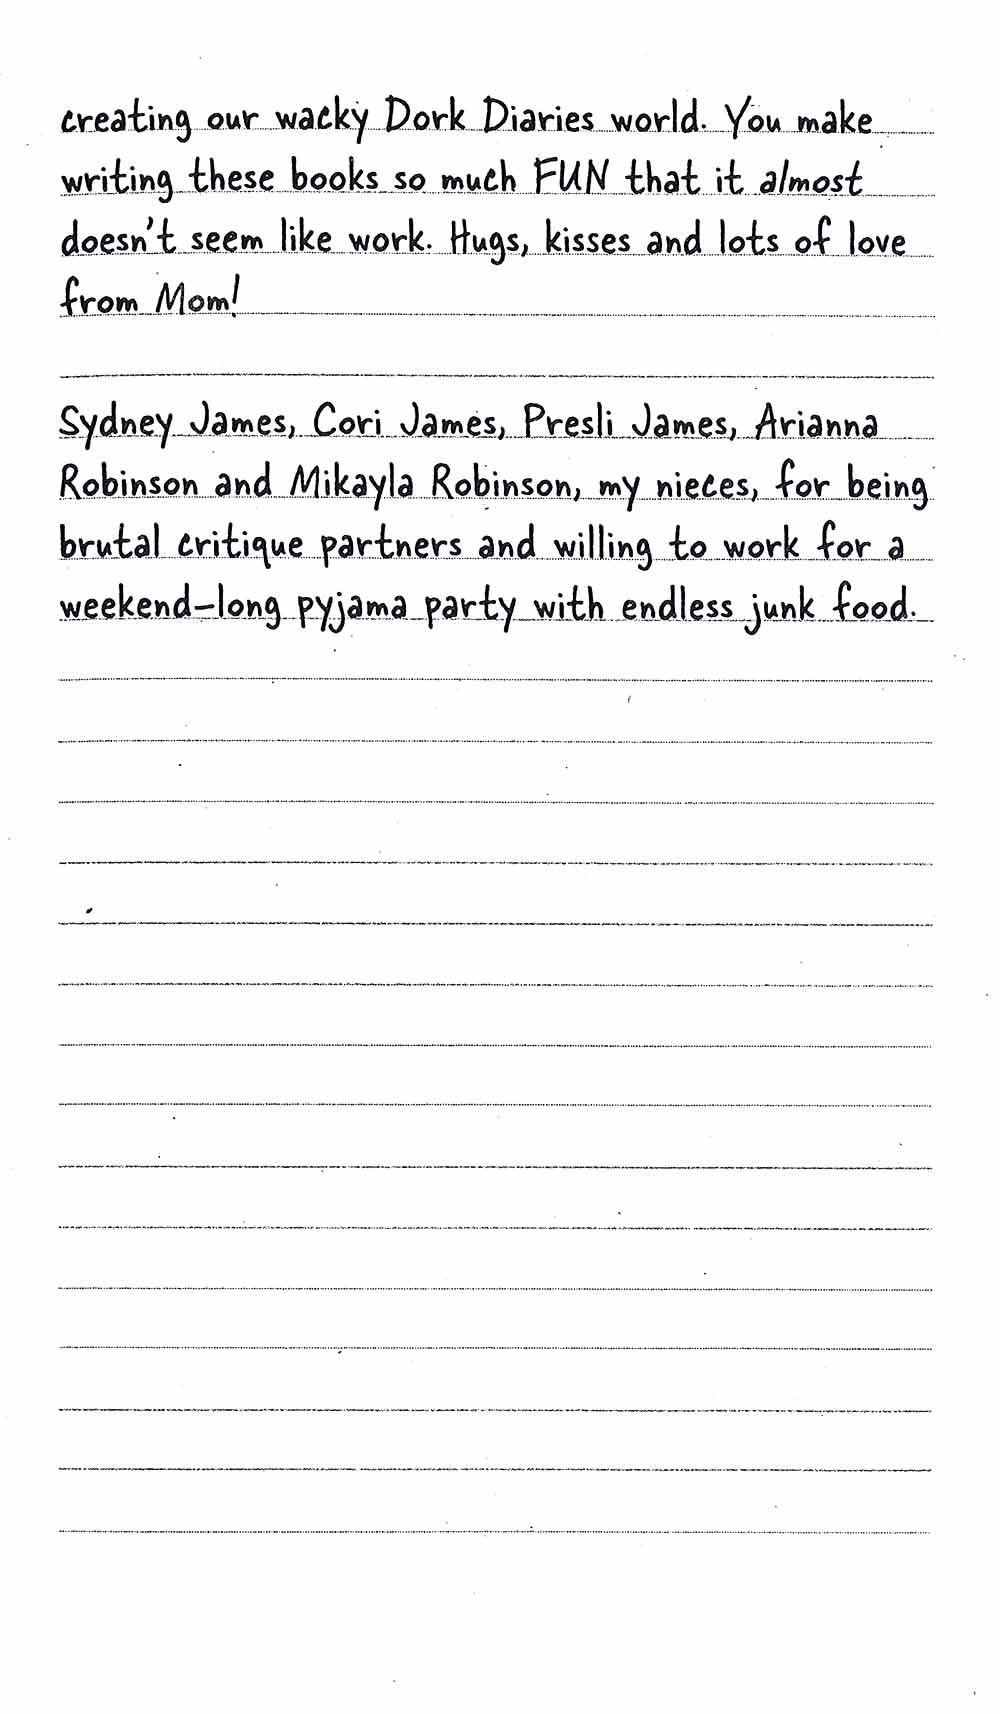 creating our wacky Dork Diaries world. You make
writing these books so much FUN that it almost
doesn't seem like work. Hugs, kisses and lots of love
from Mom!
Sydney James, Cori James, Presli James, Arianna
Robinson and Mikayla Robinson, my nieces, for being
brutal critique partners and willing to work for a
weekend-long pyjama party with endless junk food.